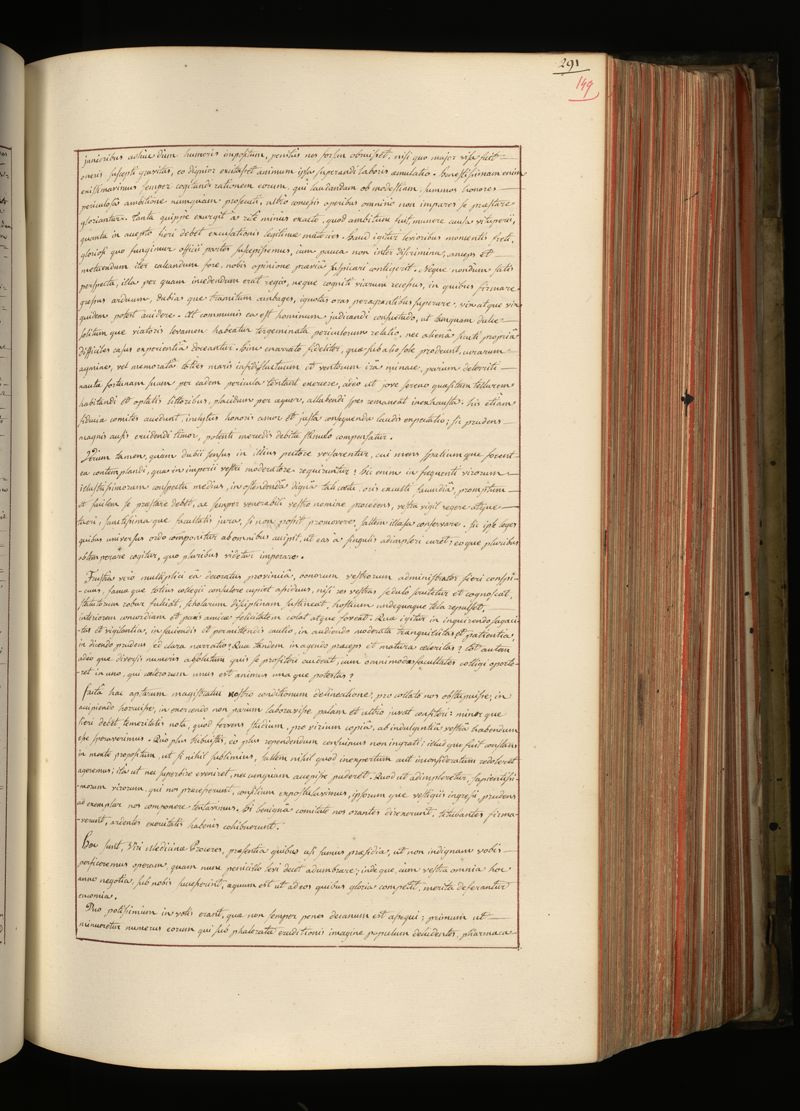 291
149
junioribus adhuc dum humeris impositum, penitus nos fortem obruisset, nisi quo major visa fuit
oneris suscepti gravitas, eo dignior excitasset animum ipsa superandi laboris æmulatio. honestissimam enim
existimavimus semper cogitandi rationem eorum, qui laudandum ob modestiam, summos honores
periculosa ambitione numquam prosecuti, ultro concessis operibus omnino non impares se præstare
gloriantur. tanta quippe exurgit a rite minus exacto, quod ambitum fuit munere causa vituperii,
quanta in accepto fieri debet excusationis legitimæ materies. Haud igitur levioribus momentis freti,
gloriosi quo fungimur officii partes suscepissemus, cum pauca non inter discrimina, anceps et
metuendum iter calcandum fore, nobis opinione prævia suspicari contigerit. Neque nondum satis
perspecta, illa per quam incedendum erat regio, neque cogniti viarum recessus, in quibus firmare
gressus arduum, dubias que tramitum ambages, ignotas oras peragrantibus superare, vix atque vix
quidem potest accidere. At communis ea est hominum judicandi consuetudo, ut tanquam dulce
solitum que viatoris levamen habeatur tergeminata periculorum relatio, nec aliena sicuti propria
difficiles casus experientia doceantur. Sic enarrato fideliter, quæ sub alio sole prodeunt, verarum
agmine, vel memorata toties maris infidi fluctuum et ventorum ira minace, parum deterriti
nautæ fortunam suam per eadem pericula tentant exercere, adeo ut jove sereno quæsitam tellurem
habitandi et optatis littoribus, placidum per æquor, allubendi spes remaneat inexhausta. his etiam
fiducia comites accedunt, inclytus honoris amor et justa consequendæ laudis expectatio; sic prudens
magnis ausis excidendi timor, potenti mercedis debitæ stimulo compensatur.
Verum tamen, quam dubii sensus in illius pectore versarentur, cui mens spatium que forent
ea contemplandi, quæ in imperii vestri moderatore requiruntur? Hic enim in frequenti virorum
illustrissimorum conspectu medius, in ostendenda digna tali cœtu, oris exculti facundia, promptum
et facilem se præstare debet, ac semper venerabili vestro nomine procedens, vestra vigil regere atque
tueri, sanctissima que facultatis jura, si non possit promovere, saltem illæsa conservare. sic ipse leges
quibus universus ordo componitur ab omnibus accipit, ut eas a singulis adimpleri curet; eo que pluribus
obtemperare cogitur, quo pluribus videtur imperare.
Frustra vero multiplici ea decoratus provincia, bonorum vestrorum administrator fieri conspi-
-cuus, famæ que totius collegii consulere cupiet assiduus, nisi res vestras sedulo scrutetur et cognoscat,
statutorum robur fulciat, scholarum disciplinam sustineat, hostium undequaque tela repulset,
interiorem concordiam et pacis amicæ felicitatem colat atque foveat. Quæ igitur in inquirendo sagaci-
-tas et vigilantia, in sciendis et permittendis cautio, in audiendo moderata tranquillitas et patientia,
in dicendo prudens et clara narratio? Quæ tandem in agendo præceps et matura celeritas? tot autem
adeo que diversis numeris absolutum quis se profiteri audeat, cum omnimodas facultates colligi oporte-
-ret in uno, qui cæterorum unus est animus una que potestas?
facta hac aptarum magistratui nostro conditionum delineatione, pro collato nos obstupuisse, in
accipiendo horruisse, in exercendo non parum laboravisse palam et ultro juvat confiteri: minor que
fieri debet temeritatis nota, quod fervens studium, pro virium copia, ab indulgentia vestra habendum
esse speraverimus. Quo plus tribuistis, eo plus rependendum censuimus non ingrati; illud que fuit constans
in mente propositum, ut si nihil sublimius, saltem nihil quod inexpertum aut inconsideratum redoleret
ageremus; ita ut nec superbire eveniret, nec unquam accepisse puderet. Quod ut adimpleretur, sapientissi-
-morum virorum, qui nos præcesserunt, consilium expostulavimus, ipsorum que vestigiis ingressi, prudens
ad exemplar nos componere tentavimus. Hi benigna comitate nos orantes direxerunt, titubantes firma-
-verunt, ardentes exercitatis habenis cohibuerunt.
Hæc sunt, Viri Medicinæ Proceres, præsentia quibus usi sumus præsidia, ut non indignam vobis
perficeremus operam, quam nunc penicillo levi decet adumbrare; inde que, cum vestra omnia hoc
anno negotia, sub nobis successerint, æquum est ut ad eos quibus gloria competit, merita deferantur
encomia.
Duo potissimum in votis erant, quæ non semper penes decanum est assequi; primum ut
minueretur numerus eorum qui sub phalerata eruditionis imagine populum deludentes, pharmaca